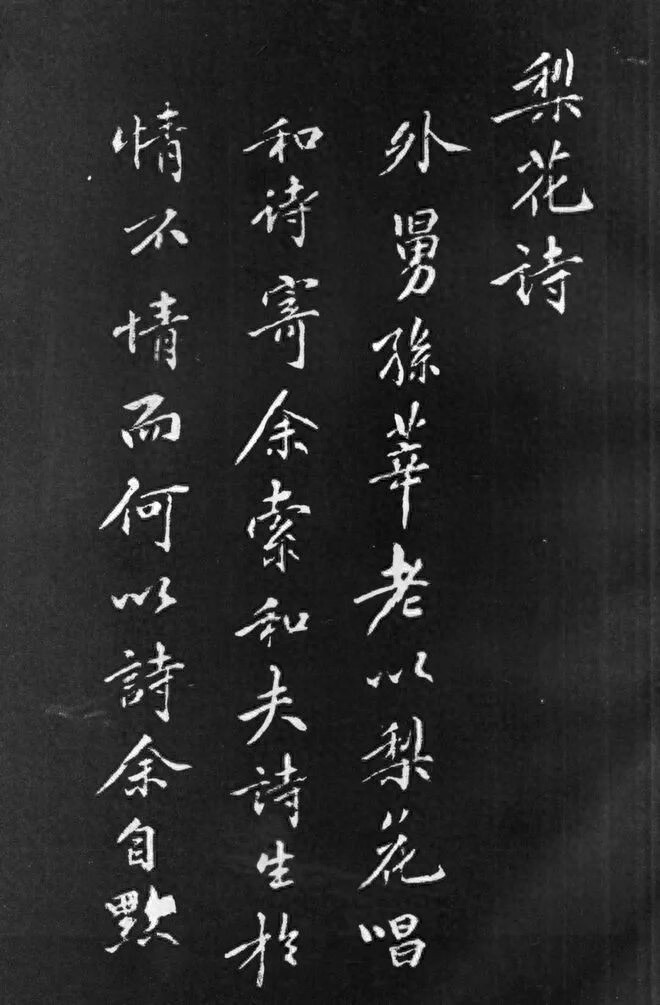 梨花詩
外舅孫莘老以梨花唱
和诗寄余索和夫詩生於
情不情而何以詩余自㸃